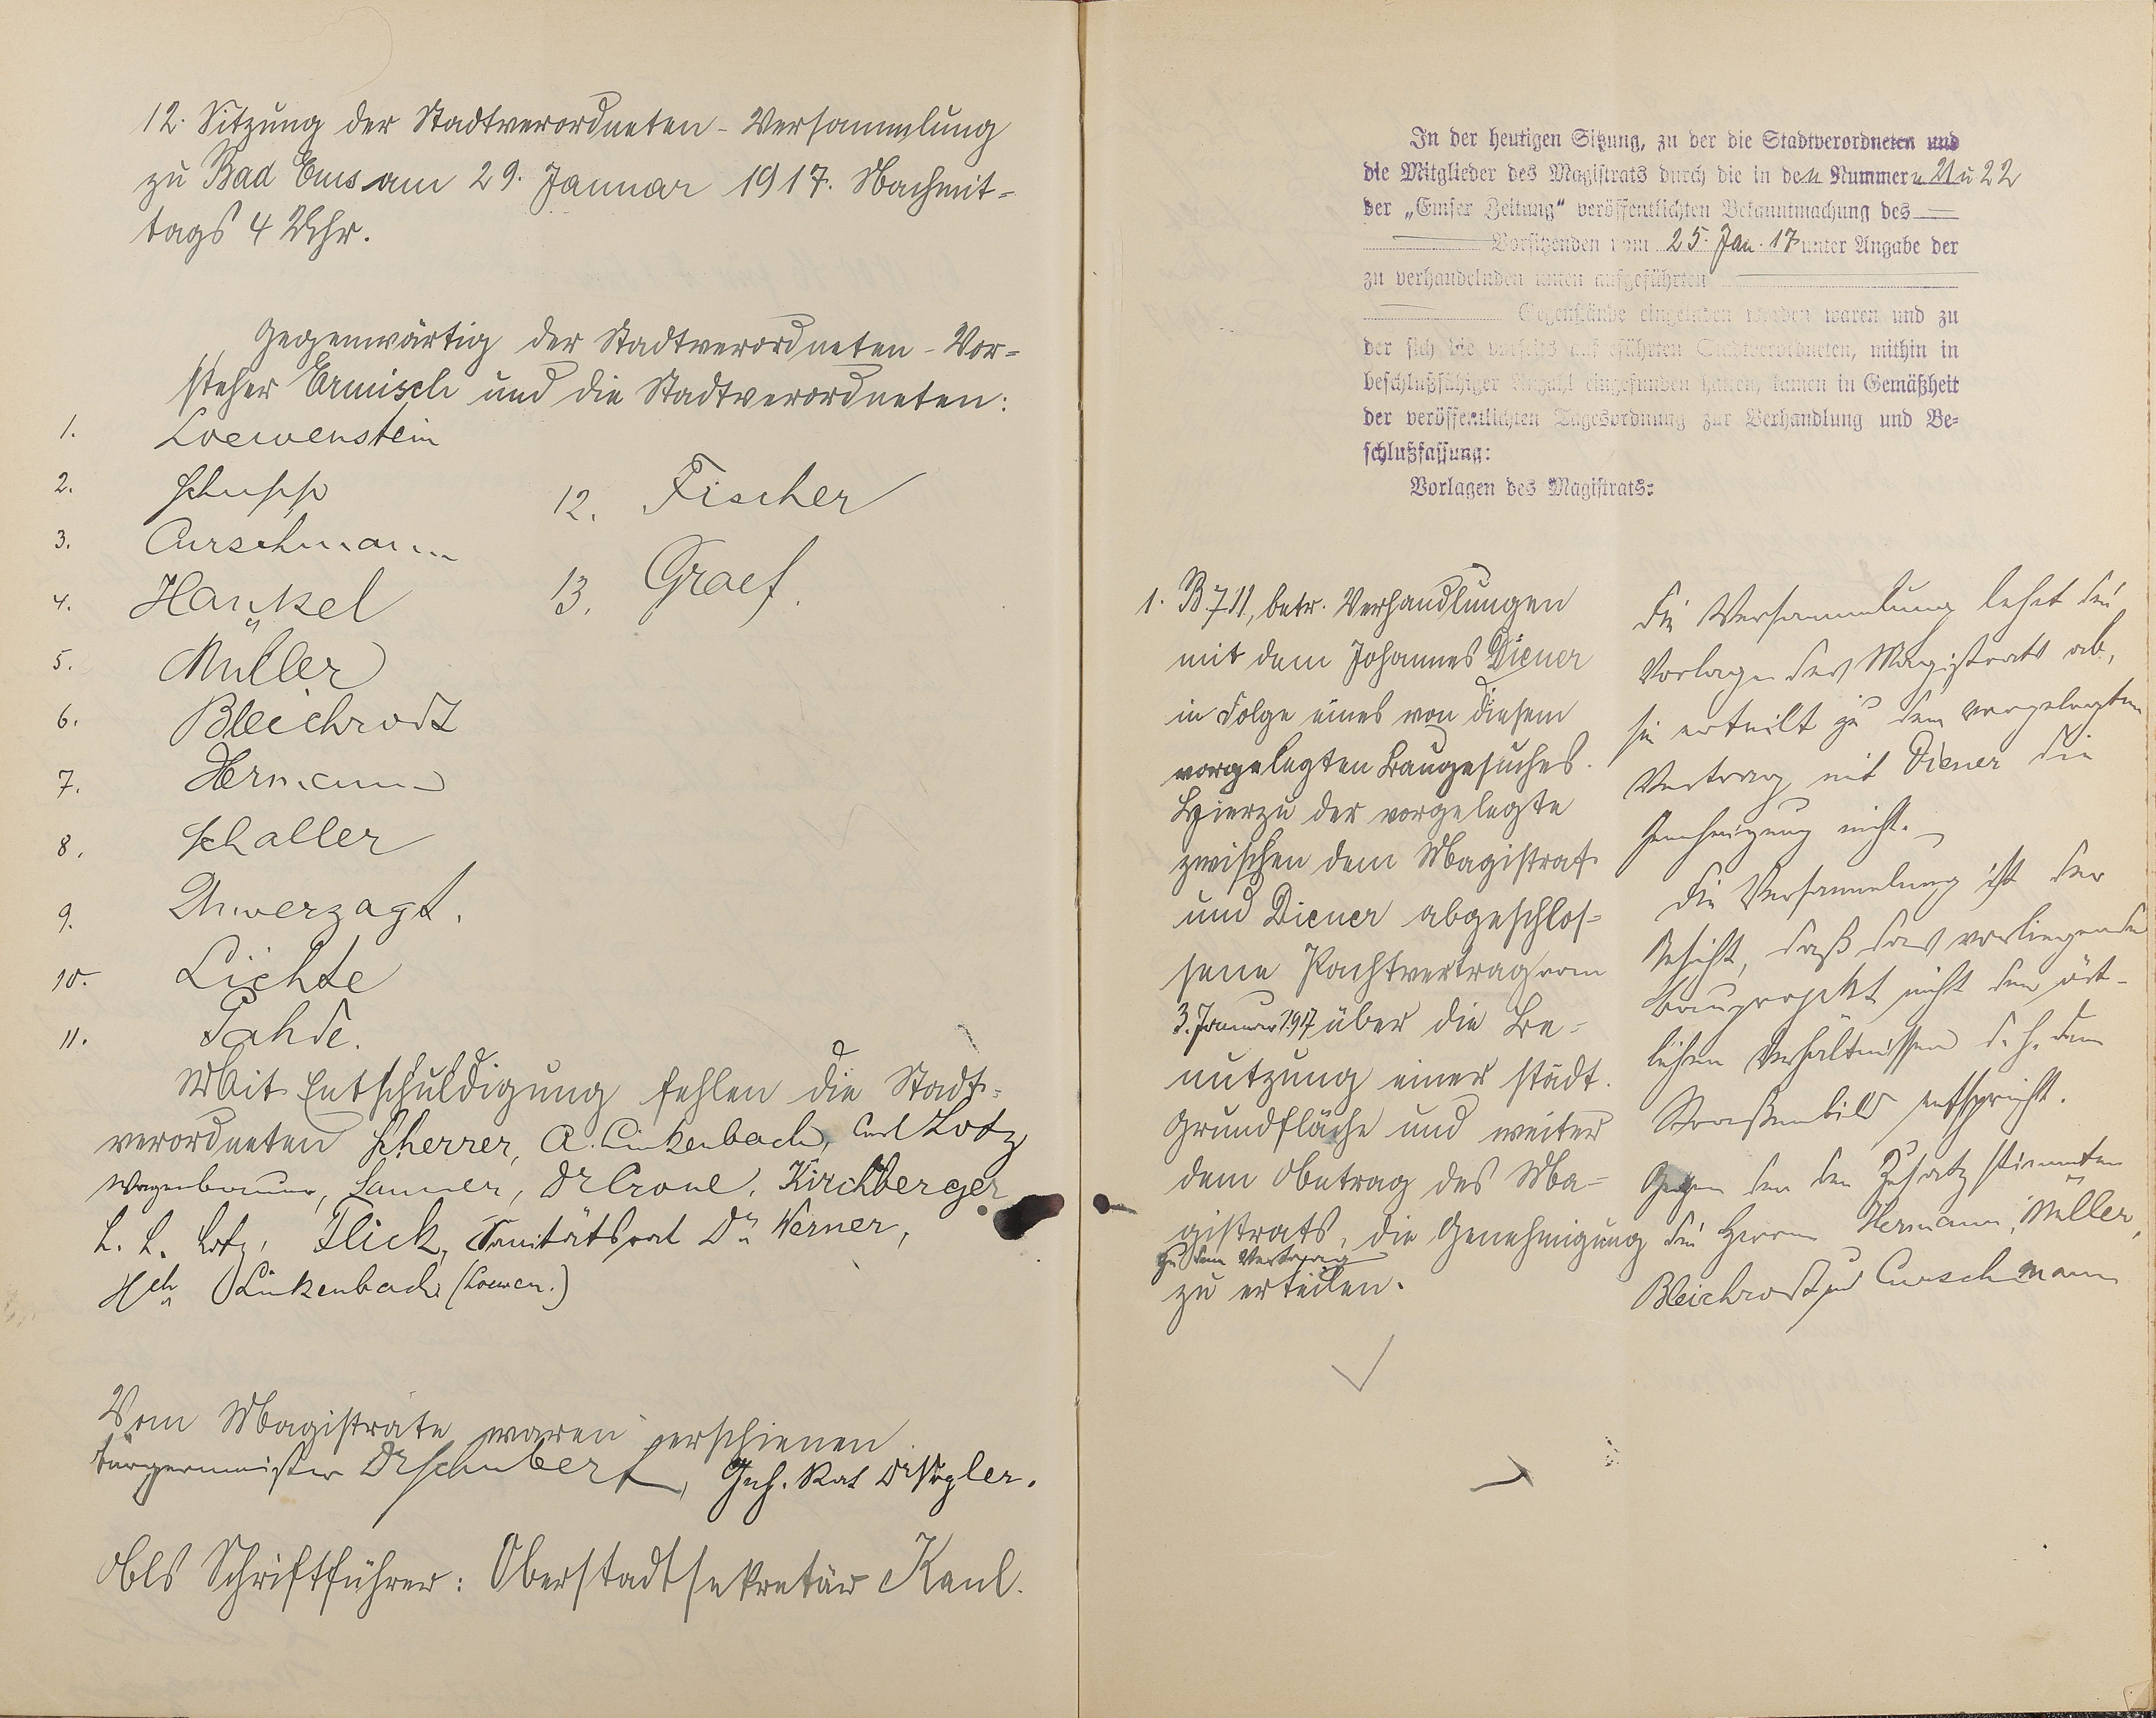 12. Sitzung der Stadtverordneten-Versammlung
zu Bad Ems am 29. Januar 1917. Nachmit-
tags 4 Uhr.
Gegenwärtig der Stadtverordneten-Vor-
steher Ermisch und die Stadtverordneten:
1. Loewenstein
2. Schupp
3. Curschmann
4. Hankel
5. Müller
6. Bleichrodt
7. Hermann
8. Schaller
9. Unverzagt.
10. Lichte
11. Pahde.
12. Fischer
13. Graef.
Mit Entschuldigung fehlen die Stadt-
verordneten Scherrer, A. Linkenbach, Carl Lotz
Sanner, Dr Crone, Kirchberger
Lotz, Flick, Sanitätsrat Dr. Werner,
Hch Linkenbach (Loewen.)
Vom Magistrate waren erschienen
Bürgermeister Dr Schubert, Geh. Rat Dr Vogler.
Als Schriftführer: Oberstadtsekretär Kaul.
In der heutigen Sitzung, zu der die Stadtverordneten und
die Mitglieder des Magistrats durch die in den Nummern 21 u 22
der „Emser Zeitung“ veröffentlichten Bekanntmachung des
Vorsitzenden vom 25. Jan. 17 unter Angabe der
zu verhandelnden unten aufgeführten
Gegenstände eingeladen worden waren und zu
der sich die vorseits aufgeführten Stadtverordneten, mithin in
beschlußfähiger Anzahl eingefunden hatten, kamen in Gemäßheit
der veröffentlichten Tagesordnung zur Verhandlung und Be-
schlußfassung:
Vorlagen des Magistrats:
1. B. 711, betr. Verhandlungen
mit dem Johannes Diener
in Folge eines von diesem
vorgelegten Baugesuches.
Hierzu der vorgelegte
zwischen dem Magistrat
und Diener abgeschlos-
sene Pachtvertrag vom
3. Januar 1917 über die Be-
nutzung einer städt.
Grundfläche und weiter
dem Antrag des Ma-
gistrats, die Genehmigung
zu dem Vertrag
zu erteilen.
Die Versammlung lehnt die
Vorlage des Magistrats ab,
sie erteilt zu dem vorgelegten
Vertrag mit Diener die
Genehmigung nicht.
Die Versammlung ist der
Ansicht, daß das vorliegende
Bauprojekt nicht den ört-
lichen Verhältnissen d. h. dem
Straßenbild entspricht.
Gegen den Zusatz stimmten
die Herren Hermann, Müller,
Bleichrodt und Curschmann